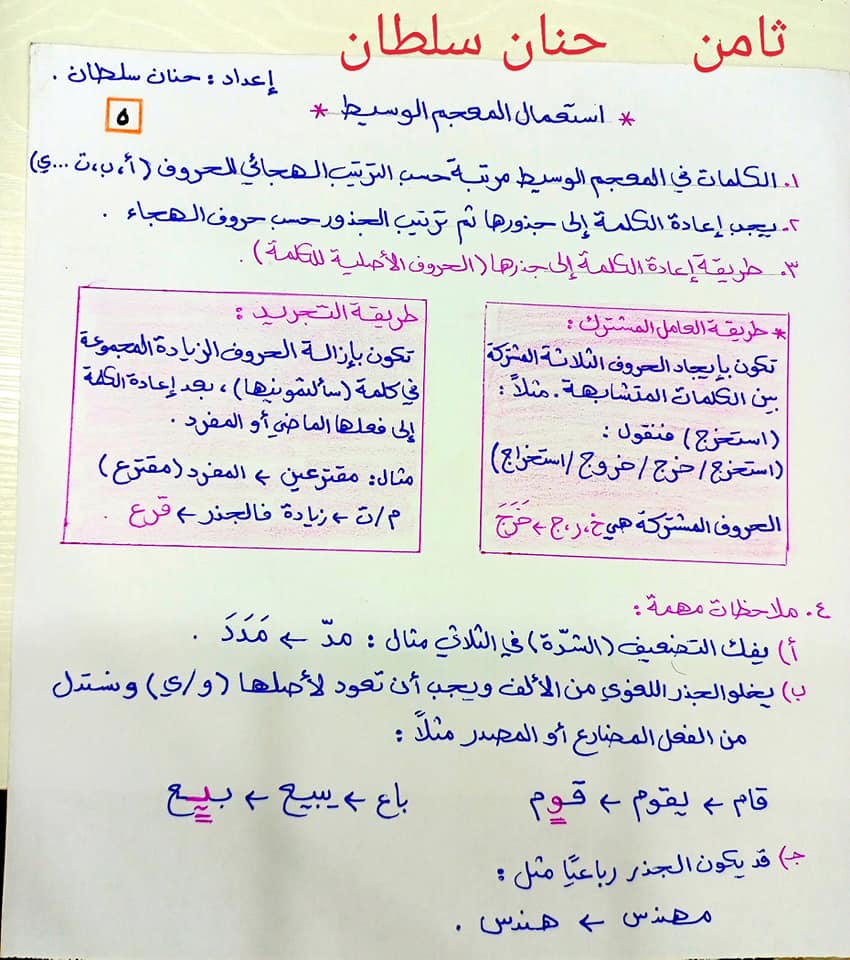 ثامن حنان سلطان
إعداد : حنان سلطان .
* استعمال المعجم الوسيط *
٥
١. الكلمات في المعجم الوسيط مرتبة حسب الترتيب الهجائي للحروف (أ، ب، ت ...ي)
٢. يجب إعادة الكلمة إلى جذورها ثم ترتيب الجذور حسب حروف الهجاء .
٣. طريقة إعادة الكلمة إلى جذرها (الحروف الأصلية للكلمة) .
* طريقة العامل المشترك :
تكون بإيجاد الحروف الثلاثة المشتركة
بين الكلمات المتشابهة . مثلاً :
(استخرج) فنقول :
(استخرج / خرج / خروج / استخراج)
الحروف المشتركة هي خ، ر، ج ← خَرَجَ
طريقة التجريد :
تكون بإزالة الحروف الزيادة المجموعة
في كلمة (سألتمونيها)، بعد إعادة الكلمة
إلى فعلها الماضي أو المفرد .
مثال: مقترعين ← المفرد (مقترع)
م/ت ← زيادة فالجذر ← قرع .
٤. ملاحظات مهمة :
أ) يفك التضعيف (الشدّة) في الثلاثي مثال : مدّ ← مَدَدَ .
ب) يخلو الجذر اللغوي من الألف ويجب أن تعود لأصلها (و/ي) ونستدل
من الفعل المضارع أو المصدر مثلاً :
قام ← يقوم ← قـوم
باع ← يبيع ← بـيـع
جـ) قد يكون الجذر رباعيًا مثل :
مهندس ← هندس .